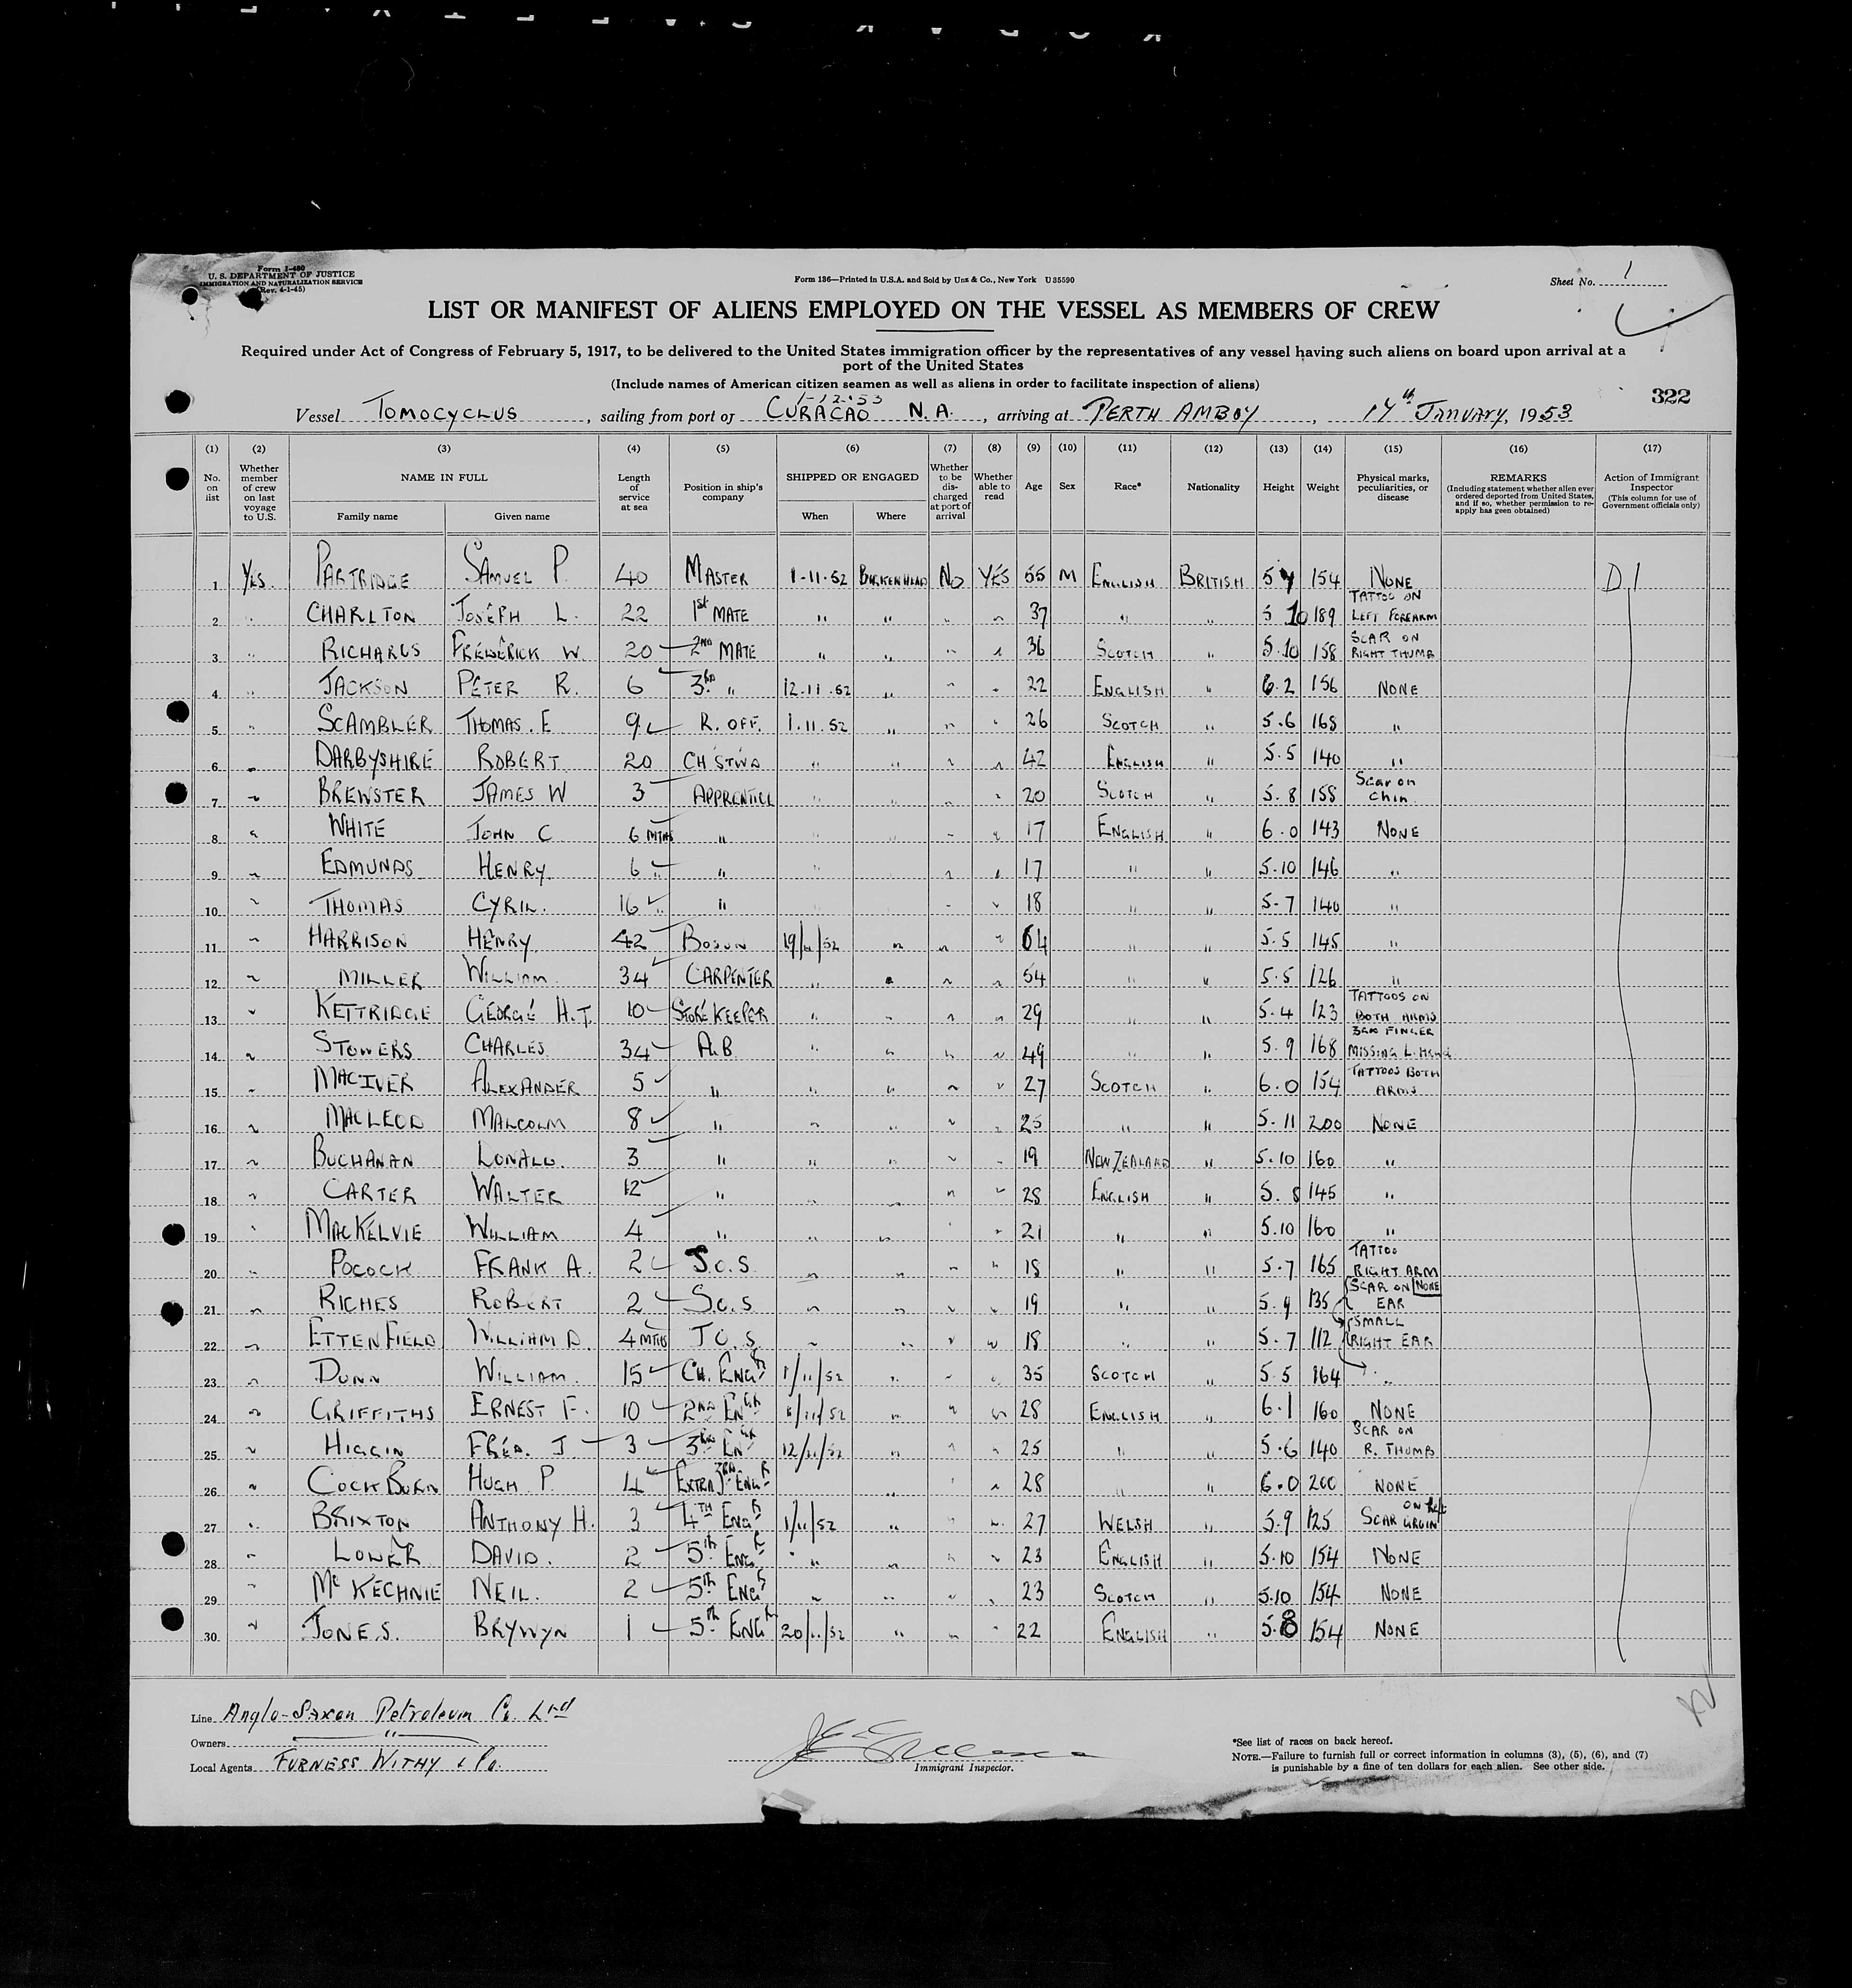 Form I-480
U. S. DEPARTMENT OF JUSTICE
IMMIGRATION AND NATURALIZATION SERVICE
(Rev. 4-1-45)
Form 136—Printed in U.S.A. and Sold by Unz & Co., New York U35590
Sheet No. 1
LIST OR MANIFEST OF ALIENS EMPLOYED ON THE VESSEL AS MEMBERS OF CREW
Required under Act of Congress of February 5, 1917, to be delivered to the United States immigration officer by the representatives of any vessel having such aliens on board upon arrival at a
port of the United States
(Include names of American citizen seamen as well as aliens in order to facilitate inspection of aliens)
1-12-53
322
Vessel TOMOCYCLUS, sailing from port of CURACAO N.A., arriving at PERTH AMBOY, 17th JANUARY, 1953
(1) (2) (3) (4) (5) (6) (7) (8) (9) (10) (11) (12) (13) (14) (15) (16) (17)
No. on list Whether member of crew on last voyage to U.S. NAME IN FULL Length of service at sea Position in ship's company SHIPPED OR ENGAGED Whether to be discharged at port of arrival Whether able to read Age Sex Race* Nationality Height Weight Physical marks, peculiarities, or disease REMARKS (Including statement whether alien ever ordered deported from United States, and if so, whether permission to re-apply has geen obtained) Action of Immigrant Inspector (This column for use of Government officials only)
Family name Given name When Where
1 YES. PARTRIDGE SAMUEL P. 40 MASTER 1-11-52 BIRKENHEAD NO YES 55 M ENGLISH BRITISH 5 7 154 NONE D1
2 " CHARLTON JOSEPH L. 22 1st MATE " " " " 37 " " 5 10 189 TATTOO ON LEFT FOREARM
3 " RICHARDS FREDERICK W. 20 2ND MATE " " " " 36 SCOTCH " 5.10 158 SCAR ON RIGHT THUMB
4 " JACKSON PETER R. 6 3RD " 12.11.52 " " " 22 ENGLISH " 6.2 156 NONE
5 " SCAMBLER THOMAS. E 9 R. OFF. 1.11.52 " " " 26 SCOTCH " 5.6 168 "
6 " DARBYSHIRE ROBERT 20 CH STWD " " " " 42 ENGLISH " 5.5 140 "
7 " BREWSTER JAMES W 3 APPRENTICE " " " " 20 SCOTCH " 5.8 158 Scar on Chin.
8 " WHITE JOHN C 6 MTHS " " " " " 17 ENGLISH " 6.0 143 NONE
9 " EDMUNDS HENRY. 6 " " " " " " 17 " " 5.10 146 "
10 " THOMAS CYRIL. 16 " " " " 18 " " 5-7 140 "
11 " HARRISON HENRY. 42 BOSUN 19/11/52 " " " 64 " " 5.5 145 "
12 " MILLER WILLIAM. 34 CARPENTER " " " " 54 " " 5.5 126 "
13 " KETTRIDGE GEORGE H.T. 10 STOREKEEPER " " " " 29 " " 5.4 123 TATTOOS ON BOTH ARMS
14 " STOWERS CHARLES 34 A.B " " " " 49 " " 5.9 168 3RD FINGER MISSING L. HAND
15 " MACIVER ALEXANDER 5 " " " " " 27 SCOTCH " 6.0 154 TATTOOS BOTH ARMS
16 " MACLEOD MALCOLM 8 " " " " " 25 " " 5.11 200 NONE
17 " BUCHANAN DONALD. 3 " " " " " 19 NEW ZEALAND " 5.10 160 "
18 " CARTER WALTER 12 " " " " " 28 ENGLISH " 5.8 145 "
19 " MACKELVIE WILLIAM 4 " " " " " 21 " " 5.10 160 "
20 " POCOCK FRANK A. 2 S.O.S. " " " " 18 " " 5.7 165 TATTOO RIGHT ARM
21 " RICHES ROBERT 2 S.O.S " " " " 19 " " 5.9 135 SCAR ON EAR NONE
22 " ETTENFIELD WILLIAM D. 4 MTHS J.O.S. " " " " 18 " " 5.7 112 SMALL RIGHT EAR
23 " DUNN WILLIAM. 15 CH. ENGR 1/11/52 " " " 35 SCOTCH " 5.5 164 "
24 " GRIFFITHS ERNEST F. 10 2ND ENGR /11/52 " " " 28 ENGLISH " 6.1 160 NONE
25 " HIGGIN FRED. J 3 3RD ENGR 12/11/52 " " " 25 " " 5.6 140 SCAR ON R. THUMB
26 " COCKBURN HUGH P. 4 EXTRA 3RD ENGR " " " 28 " " 6.0 200 NONE
27 " BRIXTON ANTHONY H. 3 4TH ENGR 1/11/52 " " " 27 WELSH " 5.9 125 SCAR ON left GROIN
28 " LOWER DAVID. 2 5th ENGR " " " " 23 ENGLISH " 5.10 154 NONE
29 " McKECHNIE NEIL. 2 5th ENGR " " " " 23 SCOTCH " 5.10 154 NONE
30 " JONES. BRYWYN 1 5th ENGR 20/11/52 " " " 22 ENGLISH " 5.8 154 NONE
Line Anglo-Saxon Petroleum Co. Ltd
Owners "
Local Agents FURNESS WITHY & Co.
Immigrant Inspector.
*See list of races on back hereof.
NOTE.—Failure to furnish full or correct information in columns (3), (5), (6), and (7)
is punishable by a fine of ten dollars for each alien. See other side.